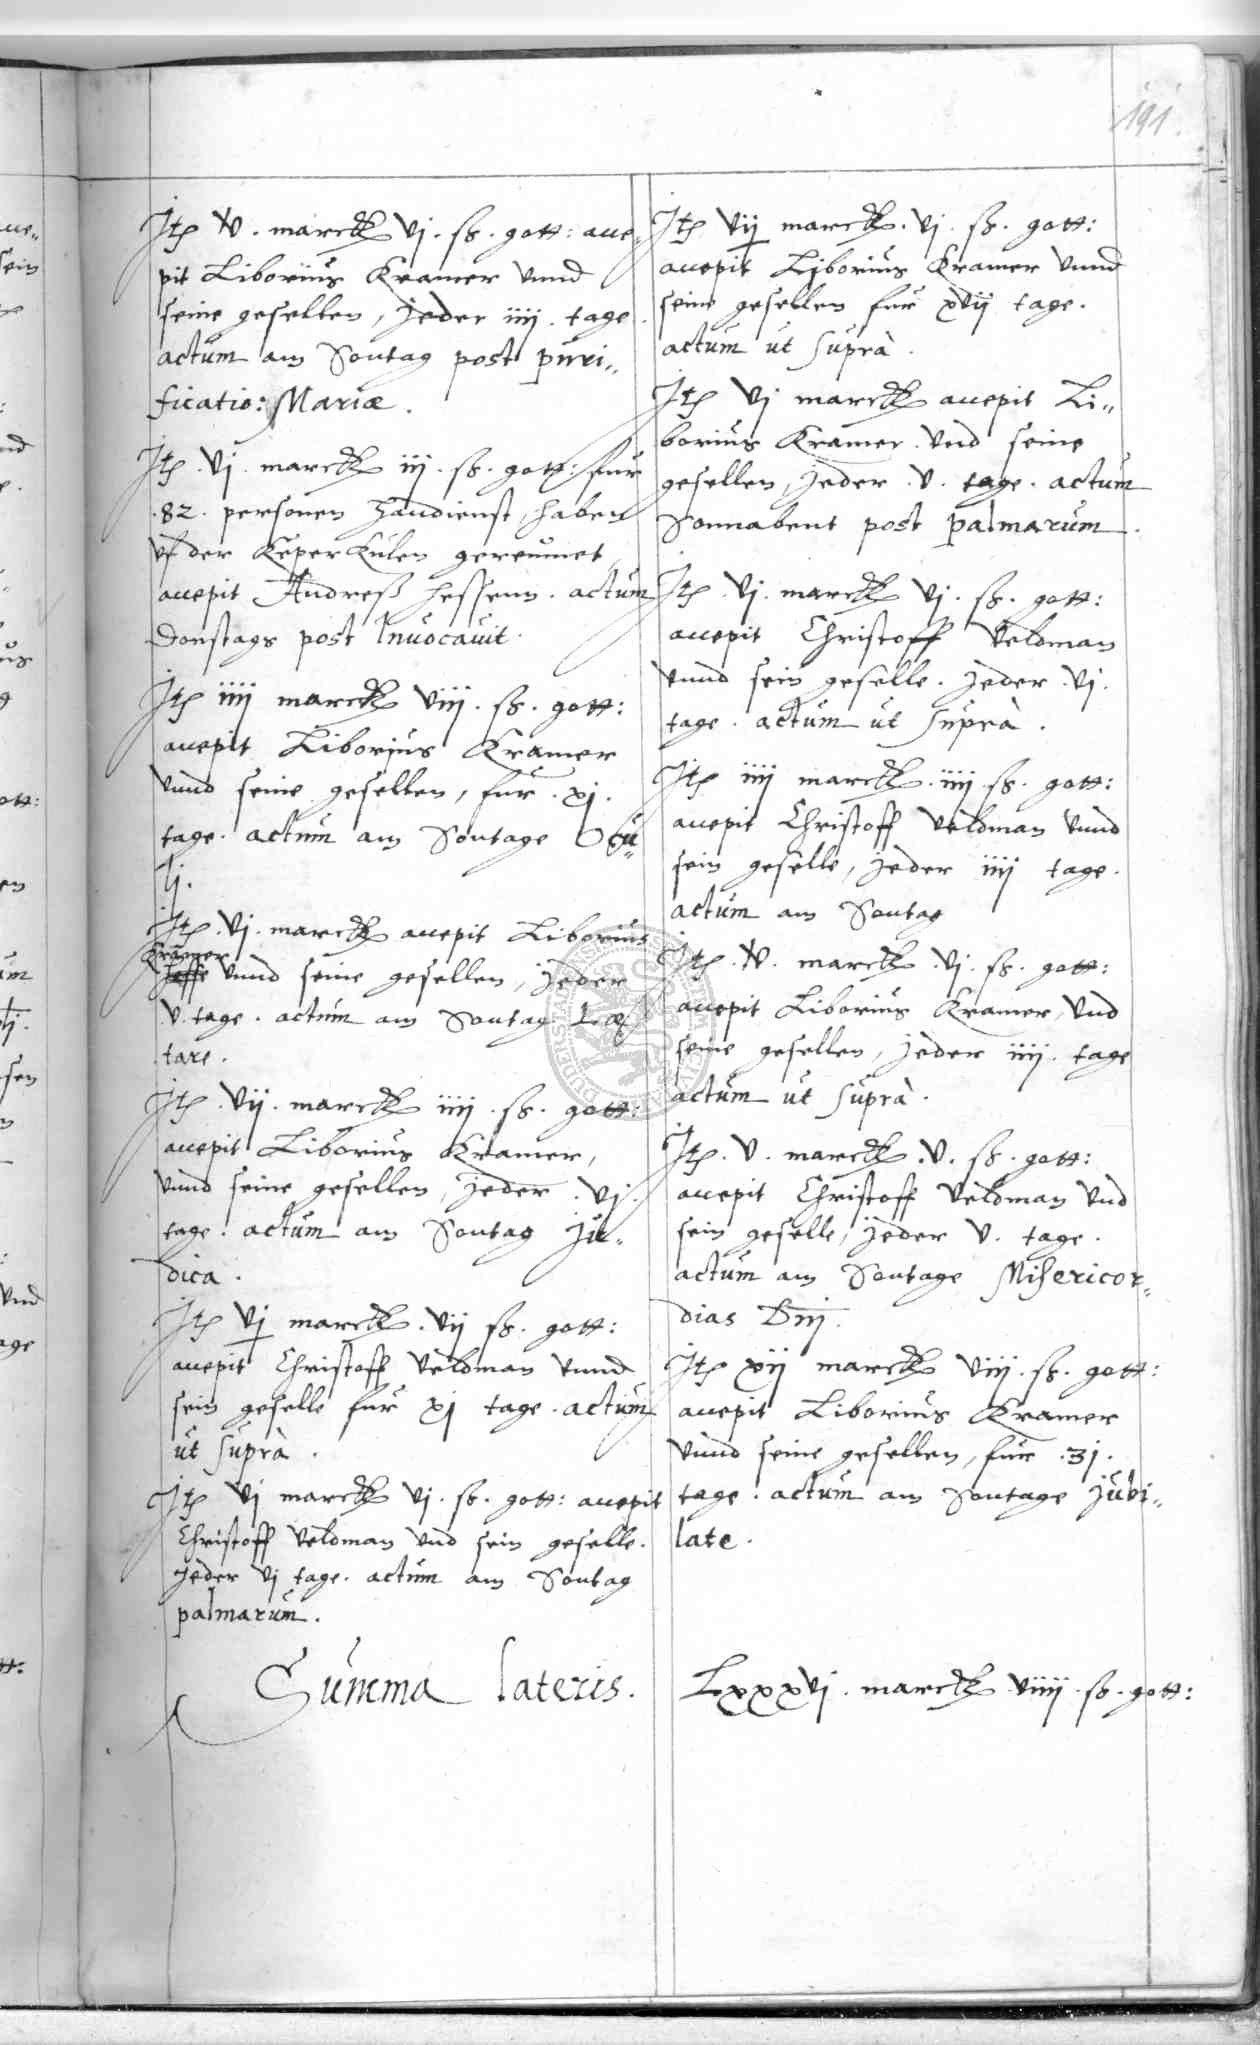 191.
Itē V. marck vj. sß. gott: acce„
pit Liborius Kramer vnnd
seine gesellen, jeder iiij. tage.
actum am Sontag post puri„
ficatio: Mariæ.
Itē. vj. marck iij. sß. gott: fur
.82. personen handienst, haben
vf der KeperKulen gereumet,
accepit Andreß Hessenn. actum
Donstags post Invocavit.
Itē iiij marck viij. sß. gott:
accepit Liborius Kramer
vnnd seine gesellen, fur .xj.
tage. actum am Sontage Ocu„
lj.
Itē. vj. marck accepit Liborius
Kramer
vnnd seine gesellen, jeder
v. tage. actum am Sontag Læ„
tare.
Itē. vij. marck iiij. sß. gott:
accepit Liborius Kramer,
vnnd seine gesellen, jeder .vj.
tage. actum am Sontag Ju„
dica.
Itē vj marck. vij sß. gott:
accepit Christoff Veldman vnnd
sein geselle fur xj tage. actum
ut suprà.
Itē vj marck vj. sß. gott: accepit
Christoff Veldman vnd sein geselle.
jeder vj tage. actum am Sontag
palmarum.
Itē vij marck. vj. sß. gott:
accepit Liborius Kramer vnnd
seine gesellen fur xvij tage.
actum ut suprà.
Itē vj marck accepit Li„
borius Kramer. vnd seine
gesellen, jeder .v. tage. actum
Sonnabent post palmarum.
Itē. vj. marck vj. sß. gott:
accepit Christoff Veldman
vnnd sein geselle. jeder .vj.
tage. actum ut suprà.
Itē iiij marck. iiij. sß. gott:
accepit Christoff Veldman vnnd
sein geselle, jeder iiij tage.
actum am Sontag
Itē. V. marck vj. sß. gott:
accepit Liborius Kramer, vnd
seine gesellen, jeder iiij. tage
actum ut suprà.
Itē. v. marck. v. sß. gott:
accepit Christoff Veldman vnd
sein geselle, jeder v. tage.
actum am Sontage Misericor„
dias Dnj.
Itē xij marck viiij. sß. gott:
accepit Liborius Kramer
vnnd seine gesellen, fur .31.
tage. actum am Sontage Jubi„
late.
Summa lateris. Lxxxvj. marck viiij. sß. gott: